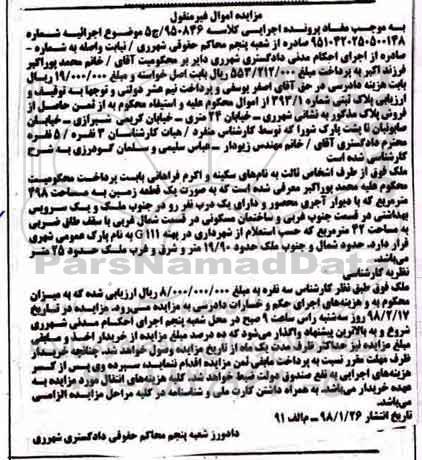 مزایده اموال غیرمنقول
به موجب مفاد پرونده اجرایی کلاسه ۹۵۰۸۴۶/ج۵ موضوع اجرائیه شماره
۹۵۱۰۴۲۰۲۵۰۵۰۰۱۴۸ صادره از شعبه پنجم محاکم حقوقی شهرری / نیابت واصله به شماره –
صادره از اجرای احکام مدنی دادگستری شهرری دایر بر محکومیت آقای / خانم محمد پوراکبر
فرزند اکبر به پرداخت مبلغ ۵۵۳/۲۱۲/۰۰۰ ریال بابت اصل خواسته و مبلغ ۱۹/۰۰۰/۰۰۰ ریال
بابت هزینه دادرسی در حق آقای اصغر یوسفی و پرداخت نیم عشر دولتی و توجها به توقیف و
ارزیابی پلاک ثبتی شماره ۳۹۳/۱ از اموال محکوم علیه و استیفاء محکوم به از ثمن حاصل از
فروش پلاک مذکور به نشانی شهرری – خیابان ۲۴ متری – خیابان کریمی شیرازی – خیابان
صابونیان تا پشت پارک شورا که توسط کارشناس منفرد / هیات کارشناسان ۳ نفره / ۵ نفره
محترم دادگستری آقای / خانم مهندس زیودار – عباس سلیمی و سلمان گودرزی به شرح
کارشناسی شده است
ملک فوق از طرف اشخاص ثالث به نام‌های سکینه و اکرم فراهانی بابت پرداخت محکومیت
محکوم علیه محمد پوراکبر معرفی شده است که به صورت یک قطعه زمین به مساحت ۴۹۸
مترمربع که با دیوار آجری محصور و دارای یک درب نفر رو در جنوب ملک و یک سرویس
بهداشتی در قسمت جنوب غربی و ساختمان مسکونی در قسمت شمال غربی با سقف طاق ضربی
به مساحت ۴۲ مترمربع که حسب استعلام از شهرداری در پهنه G111 به نام پارک عمومی شهری
قرار دارد. حدود شمال و جنوب ملک حدود ۱۹/۹۰ متر و شرق و غرب ملک حدود ۲۵ متر
می‌باشد.
نظریه کارشناسی
ملک فوق طبق نظر کارشناس سه نفره به مبلغ ۸/۰۰۰/۰۰۰/۰۰۰ ریال ارزیابی شده که به میزان
محکوم به و هزینه‌های اجرای حکم و خسارات دادرسی به مزایده می‌رود. مزایده در تاریخ
۹۸/۲/۱۷ روز سه‌شنبه راس ساعت ۹ صبح در محل شعبه پنجم اجرای احکام مدنی شهرری
شروع و به بالاترین پیشنهاد واگذار می‌شود که ده درصد مبلغ مزایده از خریدار اخذ و مابقی
مبلغ مزایده نیز حداکثر ظرف مدت یک ماه از تاریخ مزایده وصول خواهد شد. چنانچه خریدار
ظرف مهلت مقرر نسبت به پرداخت مابقی ثمن مزایده اقدام ننماید سپرده وی پس از کسر
هزینه‌های اجرایی به نفع صندوق دولت ضبط خواهد شد. کلیه هزینه‌های انتقال مورد مزایده به
عهده خریدار می‌باشد. به همراه داشتن کارت ملی و شناسنامه در کلیه مراحل مزایده الزامی
می‌باشد.
تاریخ انتشار ۹۸/۱/۲۶ – م‌الف ۹۱
دادورز شعبه پنجم محاکم حقوقی دادگستری شهرری
ParsNamadData